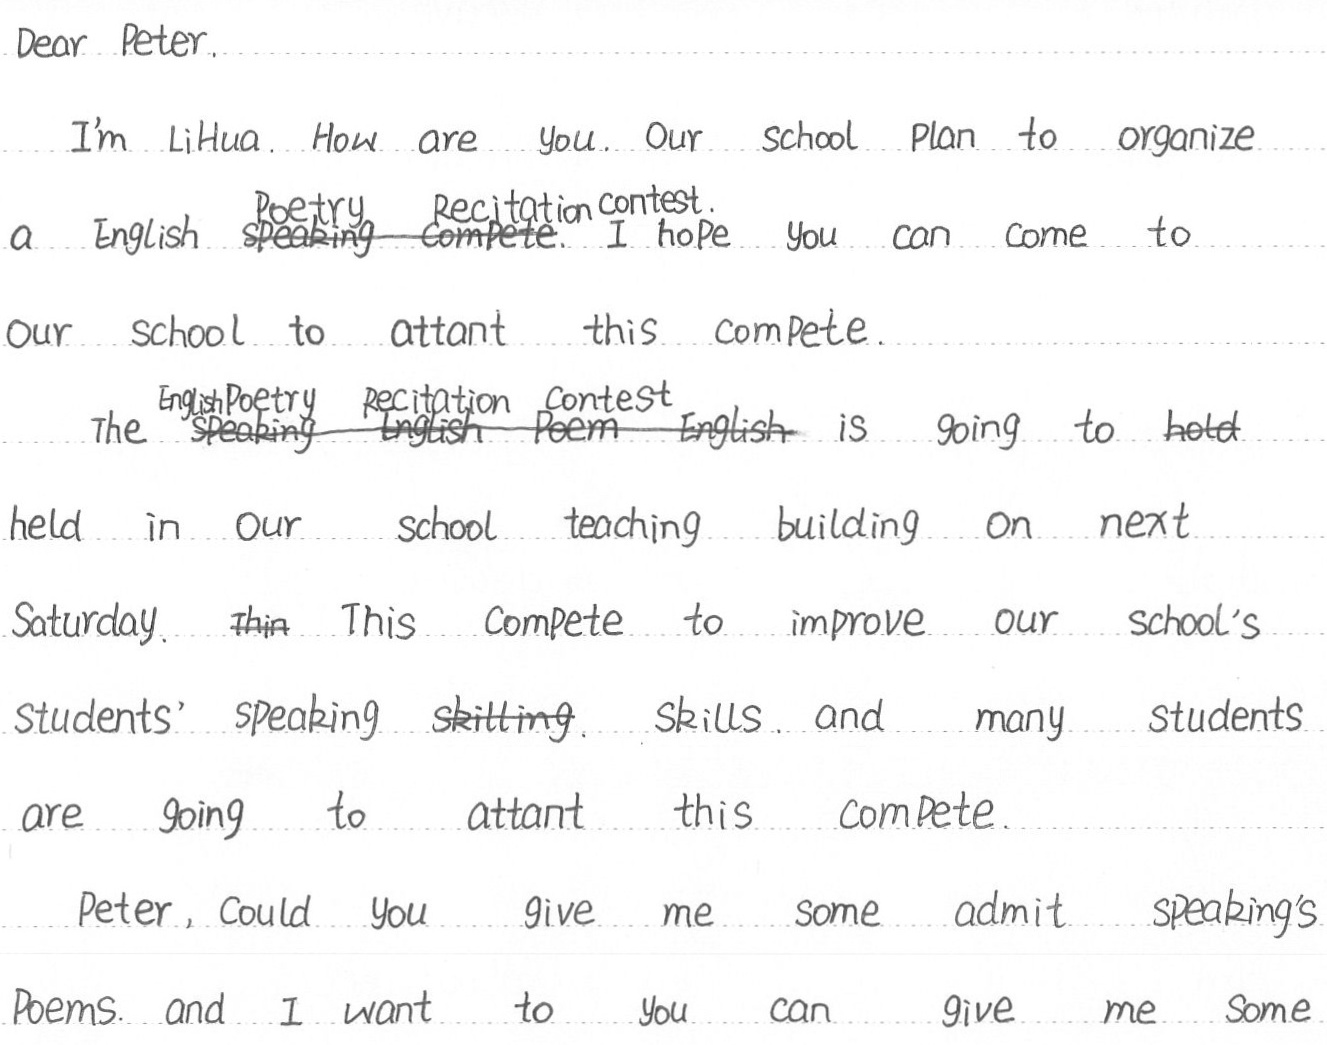 Dear Peter.
I'm LiHua. How are you. Our school plan to organize
Poetry Recitation contest.
a English speaking compete. I hope you can come to
our school to attant this compete.
English Poetry Recitation Contest
The speaking English Poem English is going to hold
held in our school teaching building on next
Saturday. Thin This compete to improve our school's
students' speaking skitting. skills. and many students
are going to attant this compete.
Peter, Could you give me some admit speaking's
Poems. and I want to you can give me some